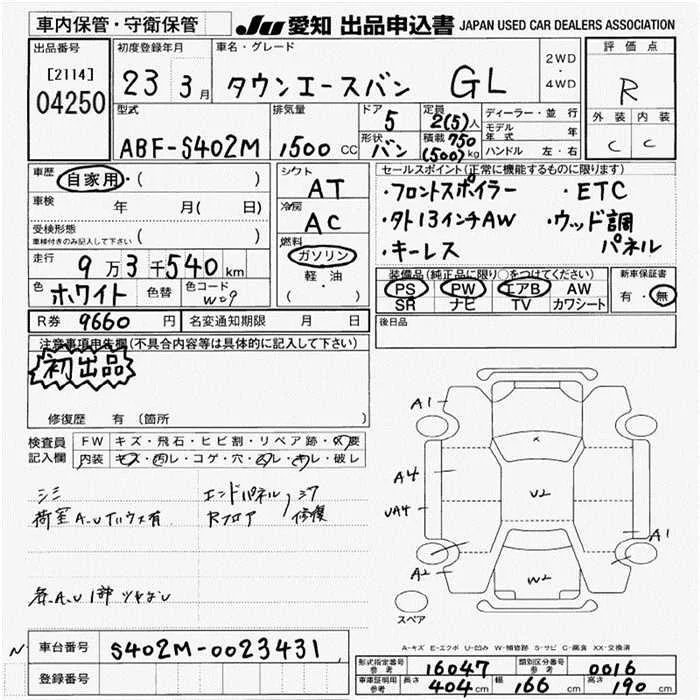 車内保管・守衛保管 JU 愛知 出品申込書 JAPAN USED CAR DEALERS ASSOCIATION
出品番号 初度登録年月 車名・グレード 2WD・4WD 評価点
[2114] 23 3月 タウンエースバン GL R
04250
型式 排気量 ドア 5 定員 2(5)人 ディーラー・並行 外装 内装
ABF-S402M 1500CC 形状 バン 積載 750(500)kg モデル年式 年 C C
ハンドル 左・右
車歴 自家用・( ) シフト AT セールスポイント(正常に機能するものに限ります)
車検 年 月( 日) 冷房 AC ・フロントスポイラー ・ETC
受検形態 ( ) ・タト13インチAW ・ウッド調パネル
車検付きのみ記入して下さい 燃料 ガソリン ・キーレス
走行 9万3千540km 軽・油 装備品(純正品に限り○をつけてください) 新車保証書
色 ホワイト 色替 色コード W09 ( ・ ) PS PW エアB AW 有・無
SR ナビ TV カワシート
R券 9660円 名変通知期限 月 日 後日品
注意事項申告欄(不具合内容等は具体的に記入して下さい)
初出品
修復歴 有 (箇所 )
検査員記入欄 FW キズ・飛石・ヒビ割・リペア跡・X要
内装 キズ・凹レ・コゲ・穴・ヌレ・キレ・破レ
シミ エンドパネル
荷室A.U 有 Rフロア 修復
A1
A4
U2
UA4
A1
A2
W2
スペア
A-キズ E-エクボ U-凹み W-補修跡 S-サビ C-腐食 XX-交換済
車台番号 S402M-0023431
登録番号
型式指定番号 参考 16047 類別区分番号 参考 0016
車庫証明用 参考 長さ 404cm 幅 166cm 高さ 190cm